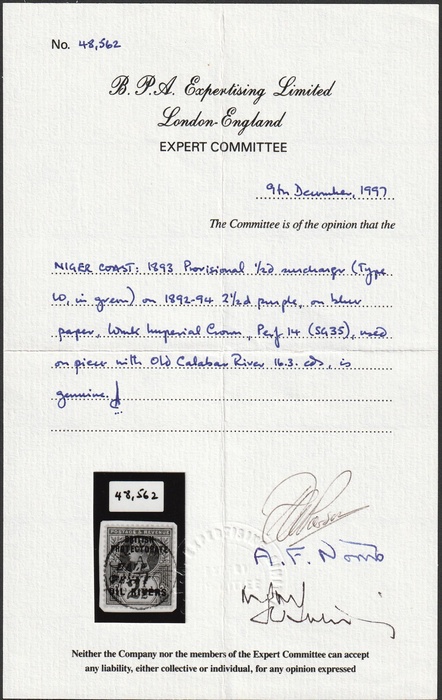 No. 48,562
B.P.A. Expertising Limited
London-England
EXPERT COMMITTEE
9th December, 1997
The Committee is of the opinion that the
NIGER COAST: 1893 Provisional ½d surcharge (Type
10, in green) on 1892-94 2½d purple, on blue
paper, Wmk Imperial Crown, Perf 14 (SG35), used
on piece with Old Calabar River 16.3. cds, is
genuine.
48,562
POSTAGE & REVENUE
BRITISH
PROTECTORATE
OIL RIVERS
A. F. Norris
Neither the Company nor the members of the Expert Committee can accept
any liability, either collective or individual, for any opinion expressed